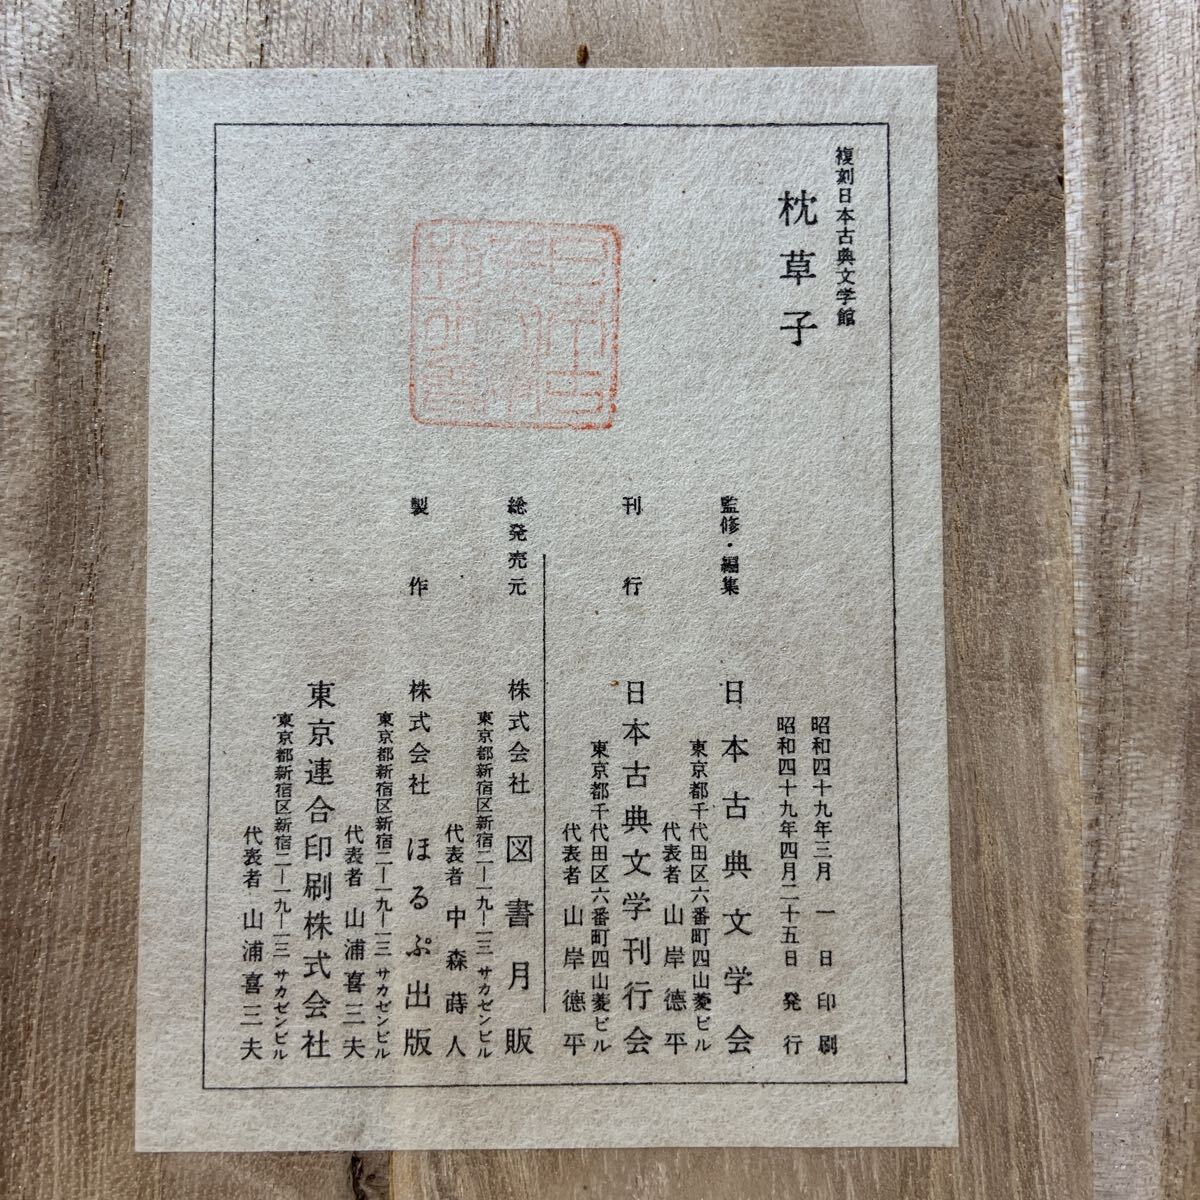 複刻日本古典文学館
枕草子
昭和四十九年三月一日印刷
昭和四十九年四月二十五日発行
監修・編集 日本古典文学会
東京都千代田区六番町四山菱ビル
代表者 山岸德平
刊行 日本古典文学刊行会
東京都千代田区六番町四山菱ビル
代表者 山岸德平
総発売元 株式会社 図書月販
東京都新宿区新宿二―一九―一三 サカゼンビル
代表者 中森蒔人
製作 株式会社 ほるぷ出版
東京都新宿区新宿二―一九―一三 サカゼンビル
代表者 山浦喜三夫
東京連合印刷株式会社
東京都新宿区新宿二―一九―一三 サカゼンビル
代表者 山浦喜三夫